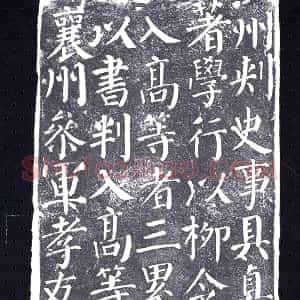 州刾史事具真
著學行以柳令
入高等者三累
以書判入高等
襄州參軍孝友